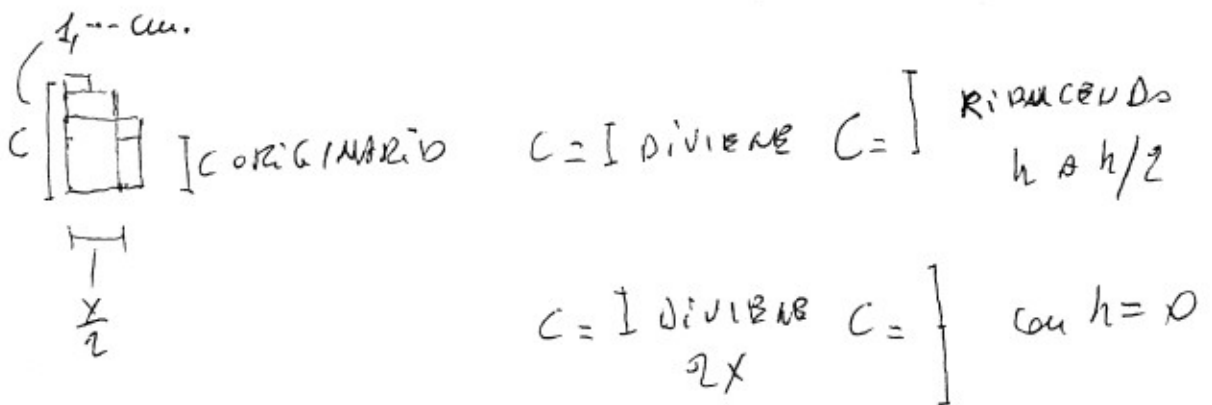 1,--- cm.
C
] C ORIGINARIO
C = I DIVIENE C = ] RIDUCENDO
h A h/2
x/2
C = I DIVIENE C = ] con h = 0
2x